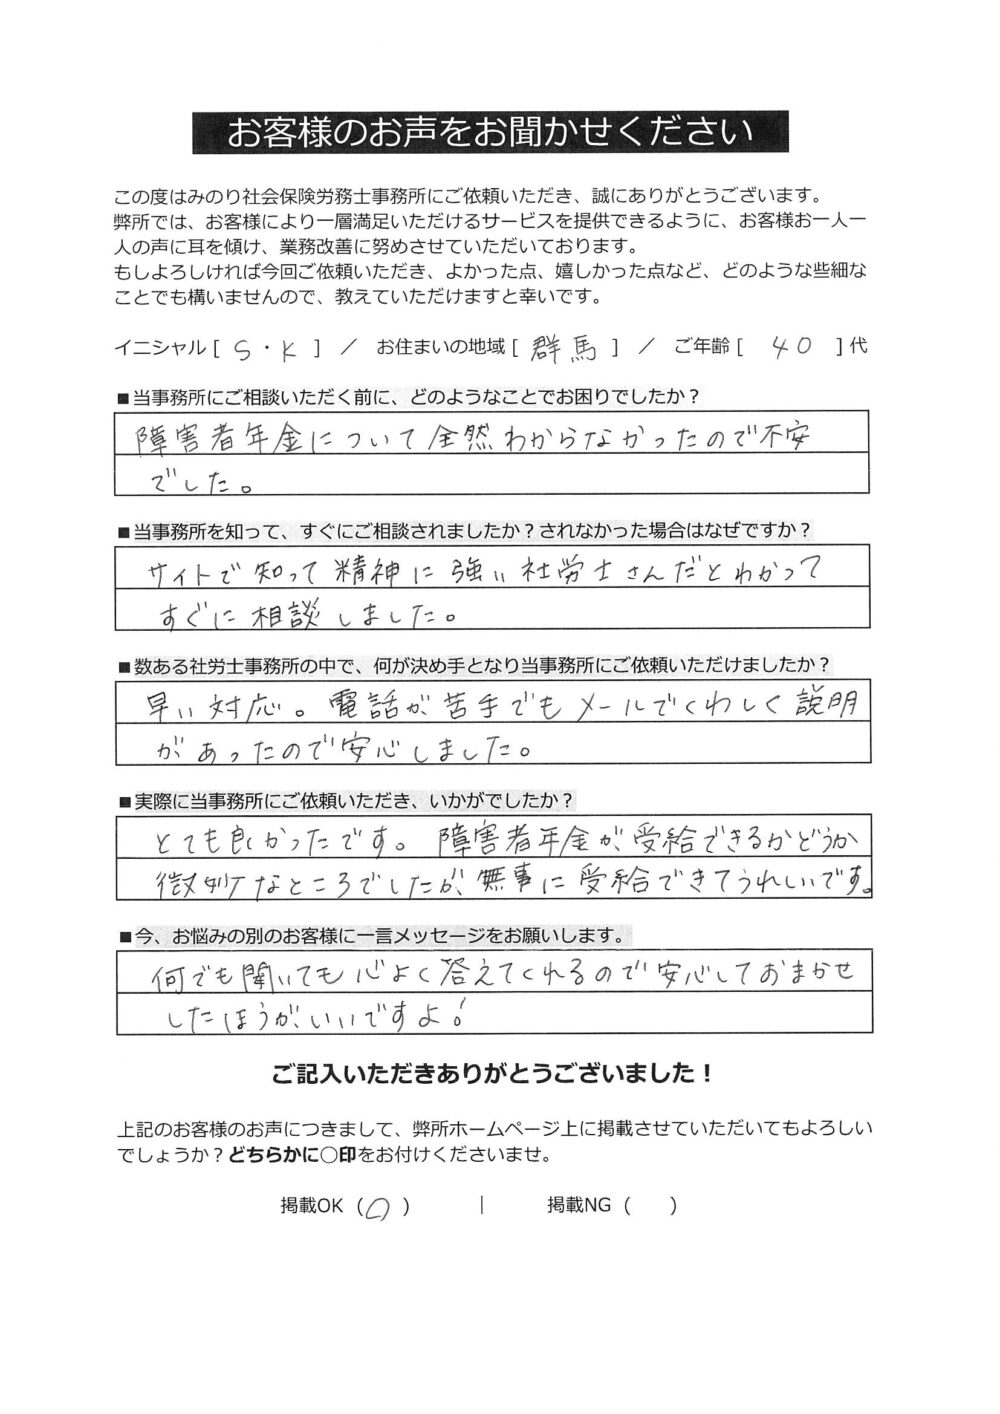 お客様のお声をお聞かせください
この度はみのり社会保険労務士事務所にご依頼いただき、誠にありがとうございます。
弊所では、お客様により一層満足いただけるサービスを提供できるように、お客様お一人一
人の声に耳を傾け、業務改善に努めさせていただいております。
もしよろしければ今回ご依頼いただき、よかった点、嬉しかった点など、どのような些細な
ことでも構いませんので、教えていただけますと幸いです。
イニシャル [ S・K ] ／ お住まいの地域 [ 群馬 ] ／ ご年齢 [ 40 ] 代
■当事務所にご相談いただく前に、どのようなことでお困りでしたか？
障害者年金について全然わからなかったので不安
でした。
■当事務所を知って、すぐにご相談されましたか？されなかった場合はなぜですか？
サイトで知って精神に強い社労士さんだとわかって
すぐに相談しました。
■数ある社労士事務所の中で、何が決め手となり当事務所にご依頼いただけましたか？
早い対応。電話が苦手でもメールでくわしく説明
があったので安心しました。
■実際に当事務所にご依頼いただき、いかがでしたか？
とても良かったです。障害者年金が受給できるかどうか
微妙なところでしたが、無事に受給できてうれしいです。
■今、お悩みの別のお客様に一言メッセージをお願いします。
何でも聞いても心よく答えてくれるので安心しておまかせ
したほうがいいですよ！
ご記入いただきありがとうございました！
上記のお客様のお声につきまして、弊所ホームページ上に掲載させていただいてもよろしい
でしょうか？どちらかに○印をお付けくださいませ。
掲載OK（○） ｜ 掲載NG（ ）